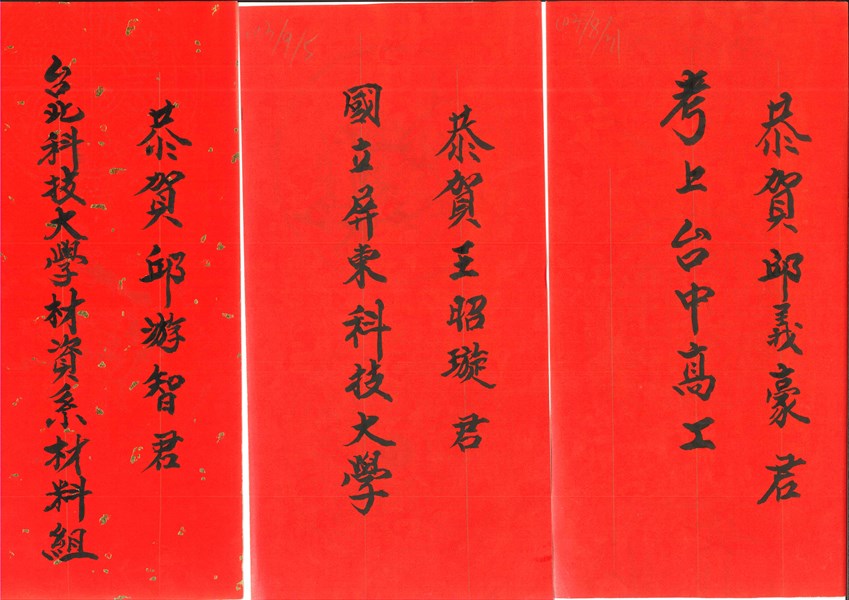 恭賀邱義豪君
考上台中高工
恭賀王昭璇君
國立屏東科技大學
103/9/5
恭賀邱游智君
台北科技大學材資系材料組